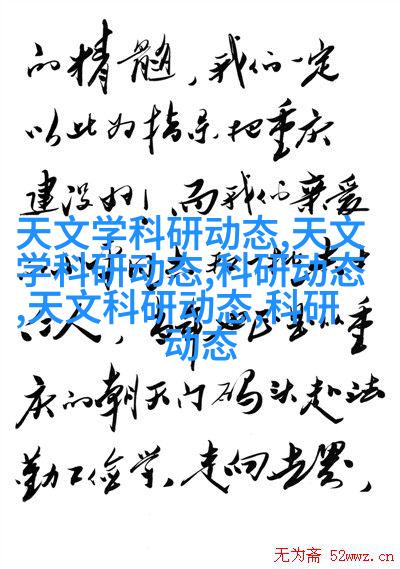 的精髓，我们一定
以此为指导把重庆
建设好！而我们亲爱
天文学科研动态,天文
学科研动态,科研动态
,天文科研动态,科研
动态
人，也正是从重
庆的朝天门码头赴法
勤工俭学，走向世界，
无为斋 52wwz.cn